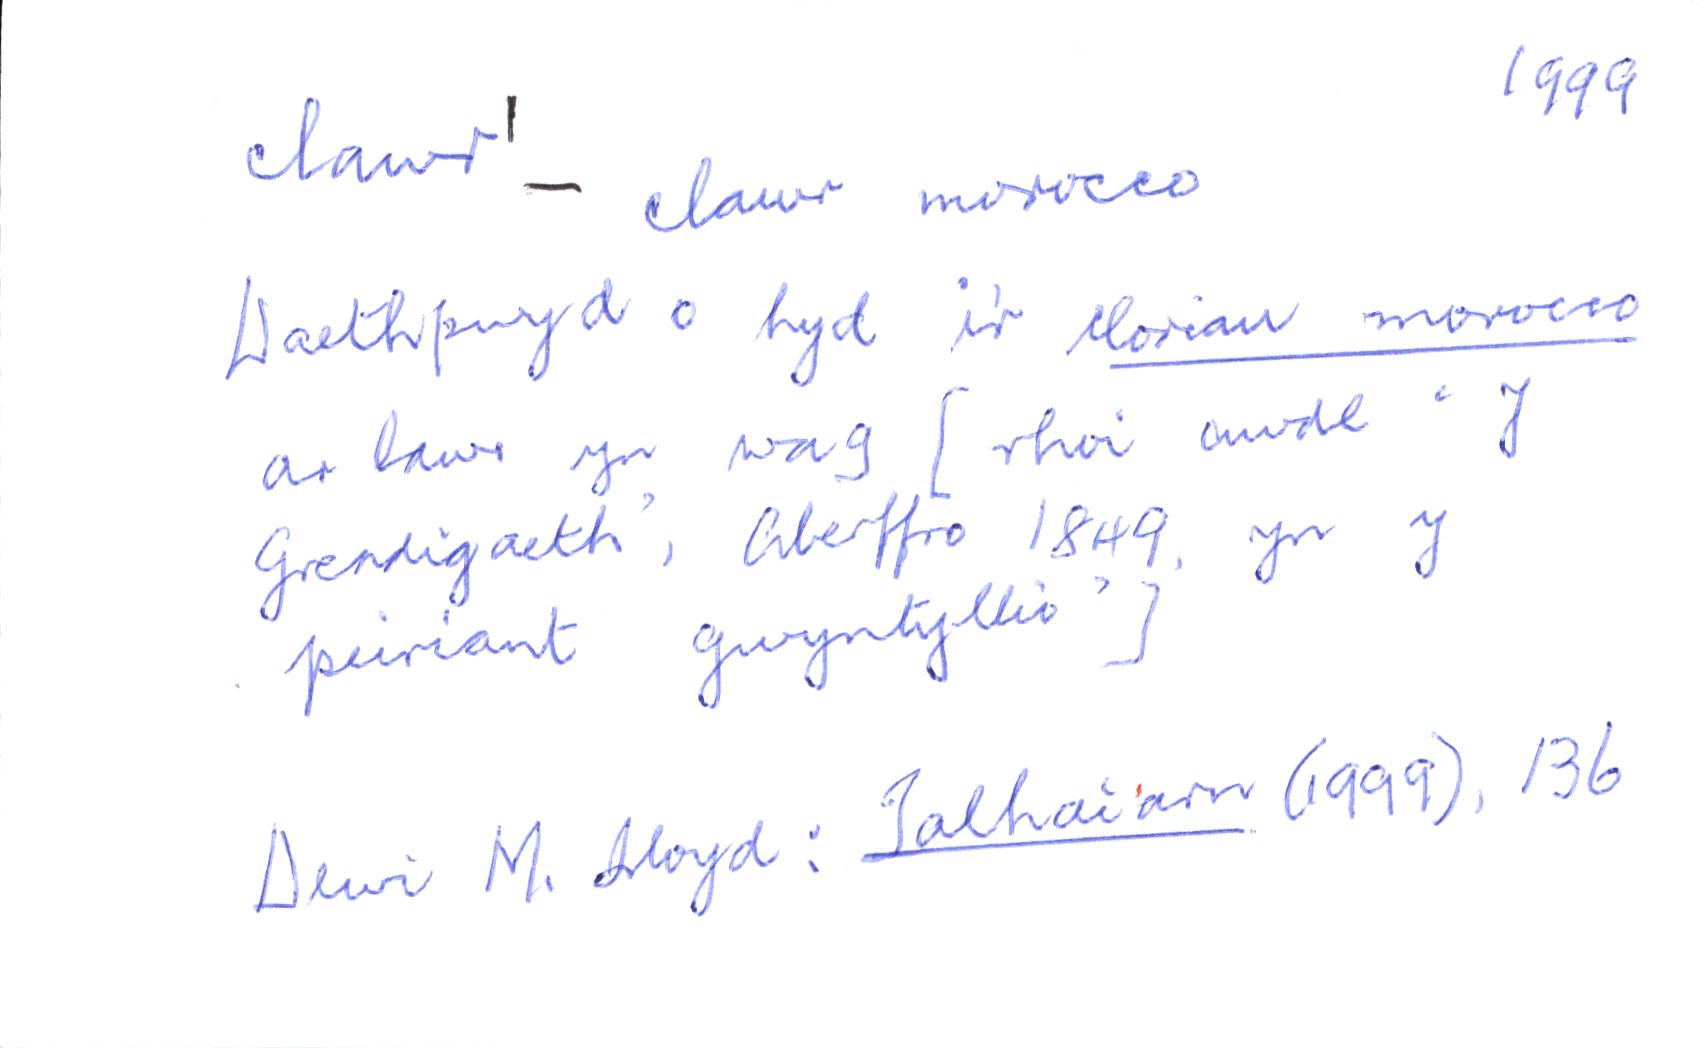 1999
clawr¹ – clawr morocco
Daethpwyd o hyd i'r cloriau morocco
ar lawr yn wag [rhoi awdl 'Y
Greadigaeth', Aberffro 1849, yn y
peiriant gwyntyllio']
Dewi M. Lloyd: Talhaiarn (1999), 136